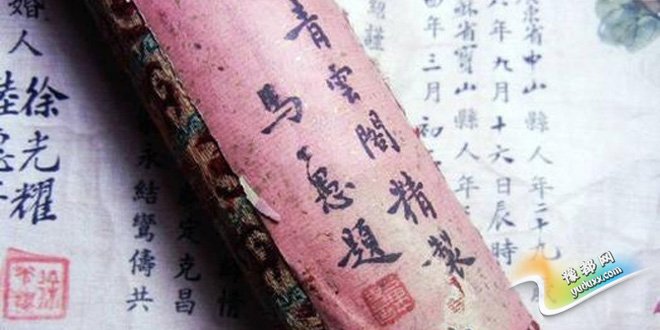 東省中山縣人年二十九
六年九月十六日辰時
蘇省寶山縣人年
四年三月初
謹
青雲閣精製
馬公愚題
定克昌
永結鸞儔共
婚人
徐光耀
豫都网
yuduxx.com